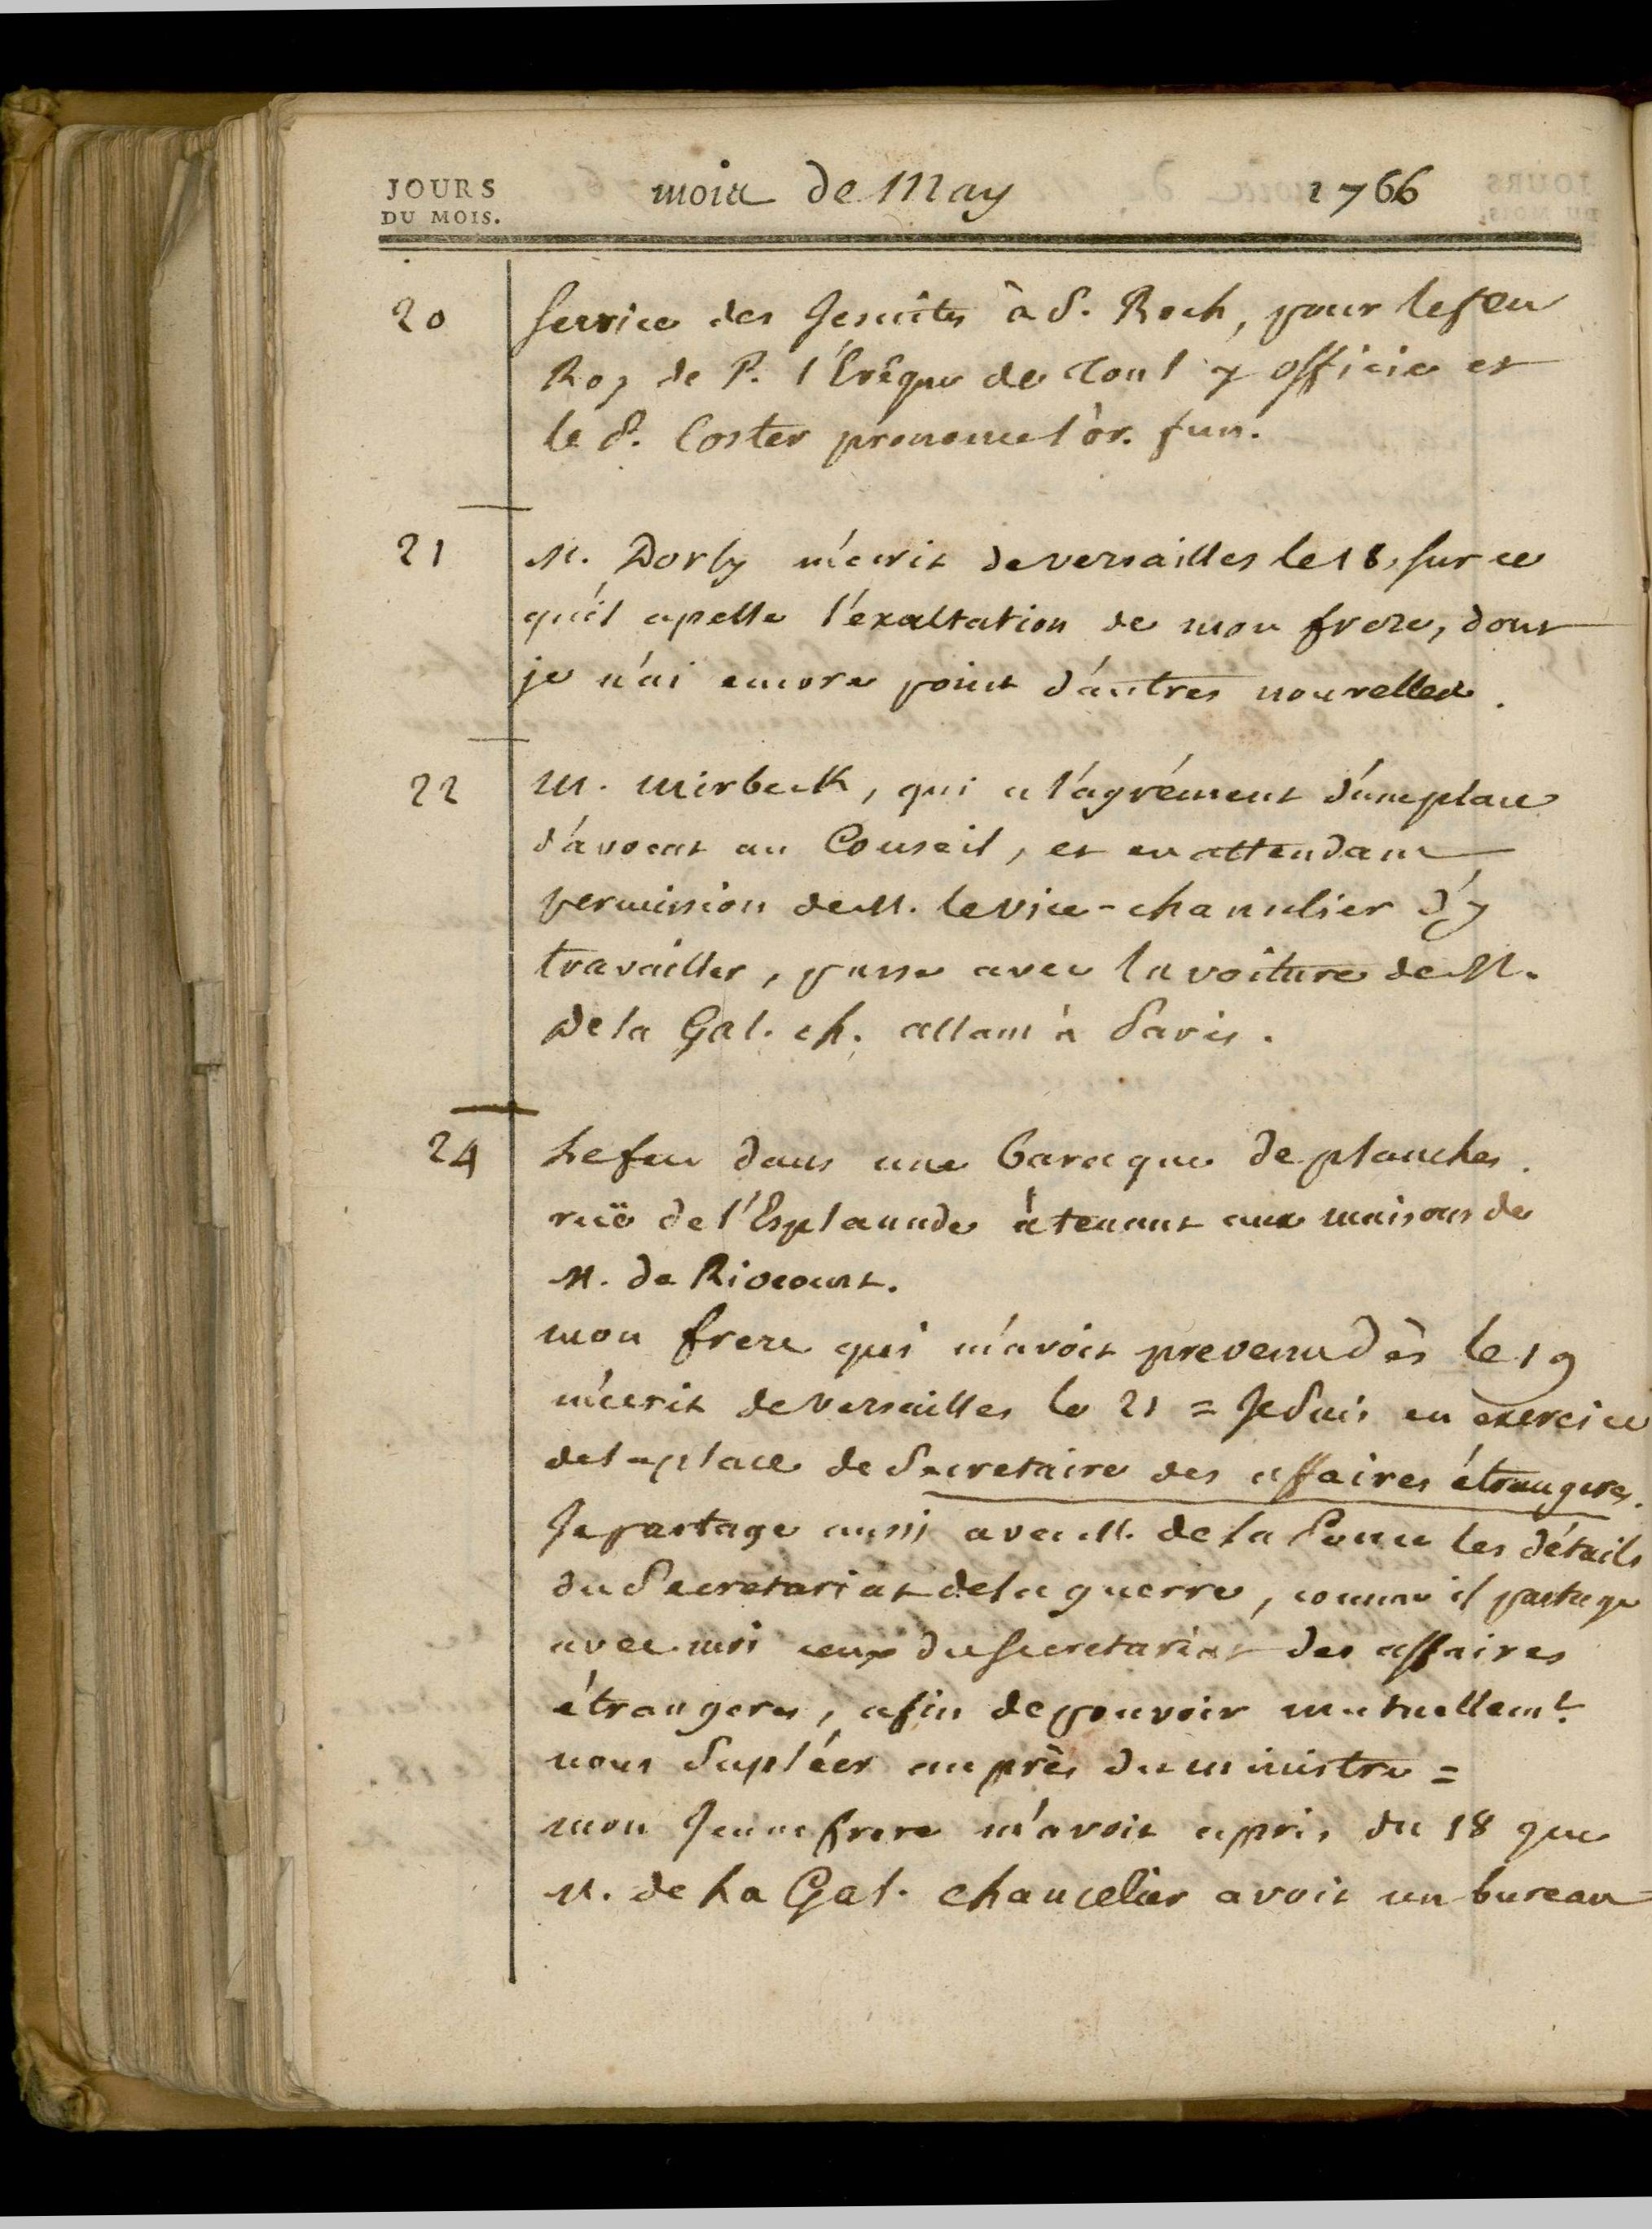 JOURS
DU MOIS.
mois de May 1766
20 Service des Jesuites à S. Roch, pour le feu
Roy de P. l'Evêque de Toul y officie et
le P. Coster prononce l'or. fun.
21 M. Dorly m'ecrit de versailles le 18, sur ce
qu'il apelle l'exaltation de mon frere, dont
je n'ai encore point d'autres nouvelles.
22 M. Mirbeck, qui a l'agrément d'une place
d'avocat au Conseil, et en attendant
permission de M. le vice-chancelier d'y
travailler, passe avec la voiture de M.
De la Gal. ch. allant à Paris.
24 Le feu dans une baraque de planches.
ruë de l'Esplanade àtenant aux maisons de
M. de Riocourt.
mon frere qui m'avoit prevenu dès le 19
m'ecrit de versailles le 21 = Je Suis en exercice
de la place de Secretaire des affaires étrangeres.
Je partage aussi avec M. de la Ponce les détails
du Secretariat de la guerre, comme il partage
avec moi ceux du Secretariat des affaires
étrangeres, afin de pouvoir mutuellemt.
nous Supléer auprès du ministre =
mon Jeune frere m'avoit apris du 18 que
M. de La Gal. chancelier avoit un bureau